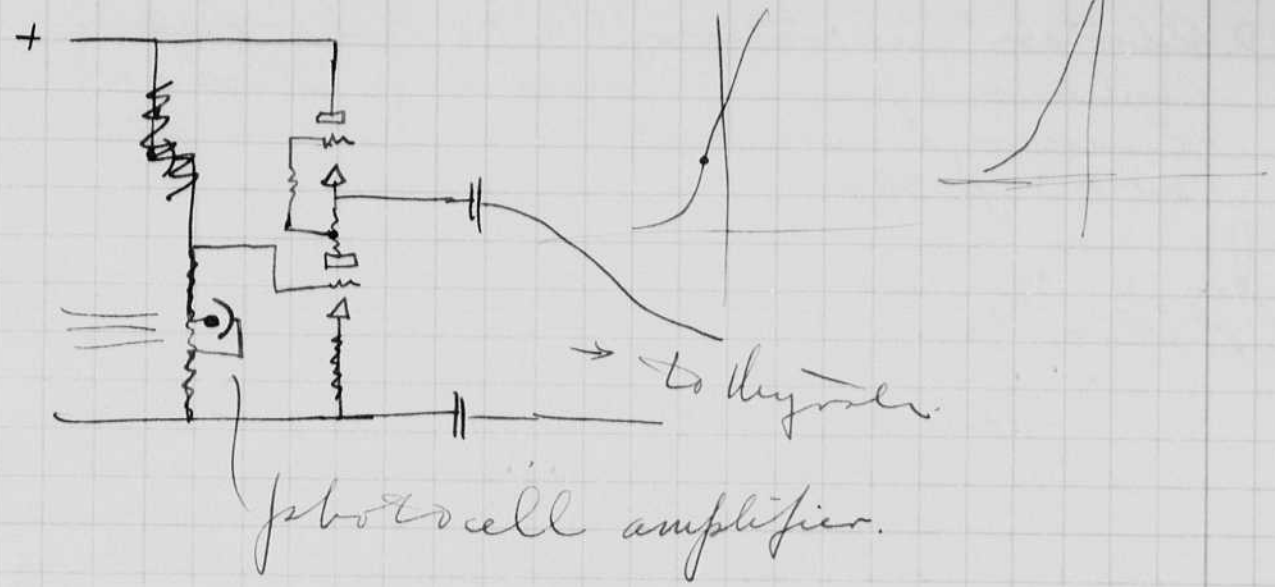 +
→ to thyratr.
photocell amplifier.